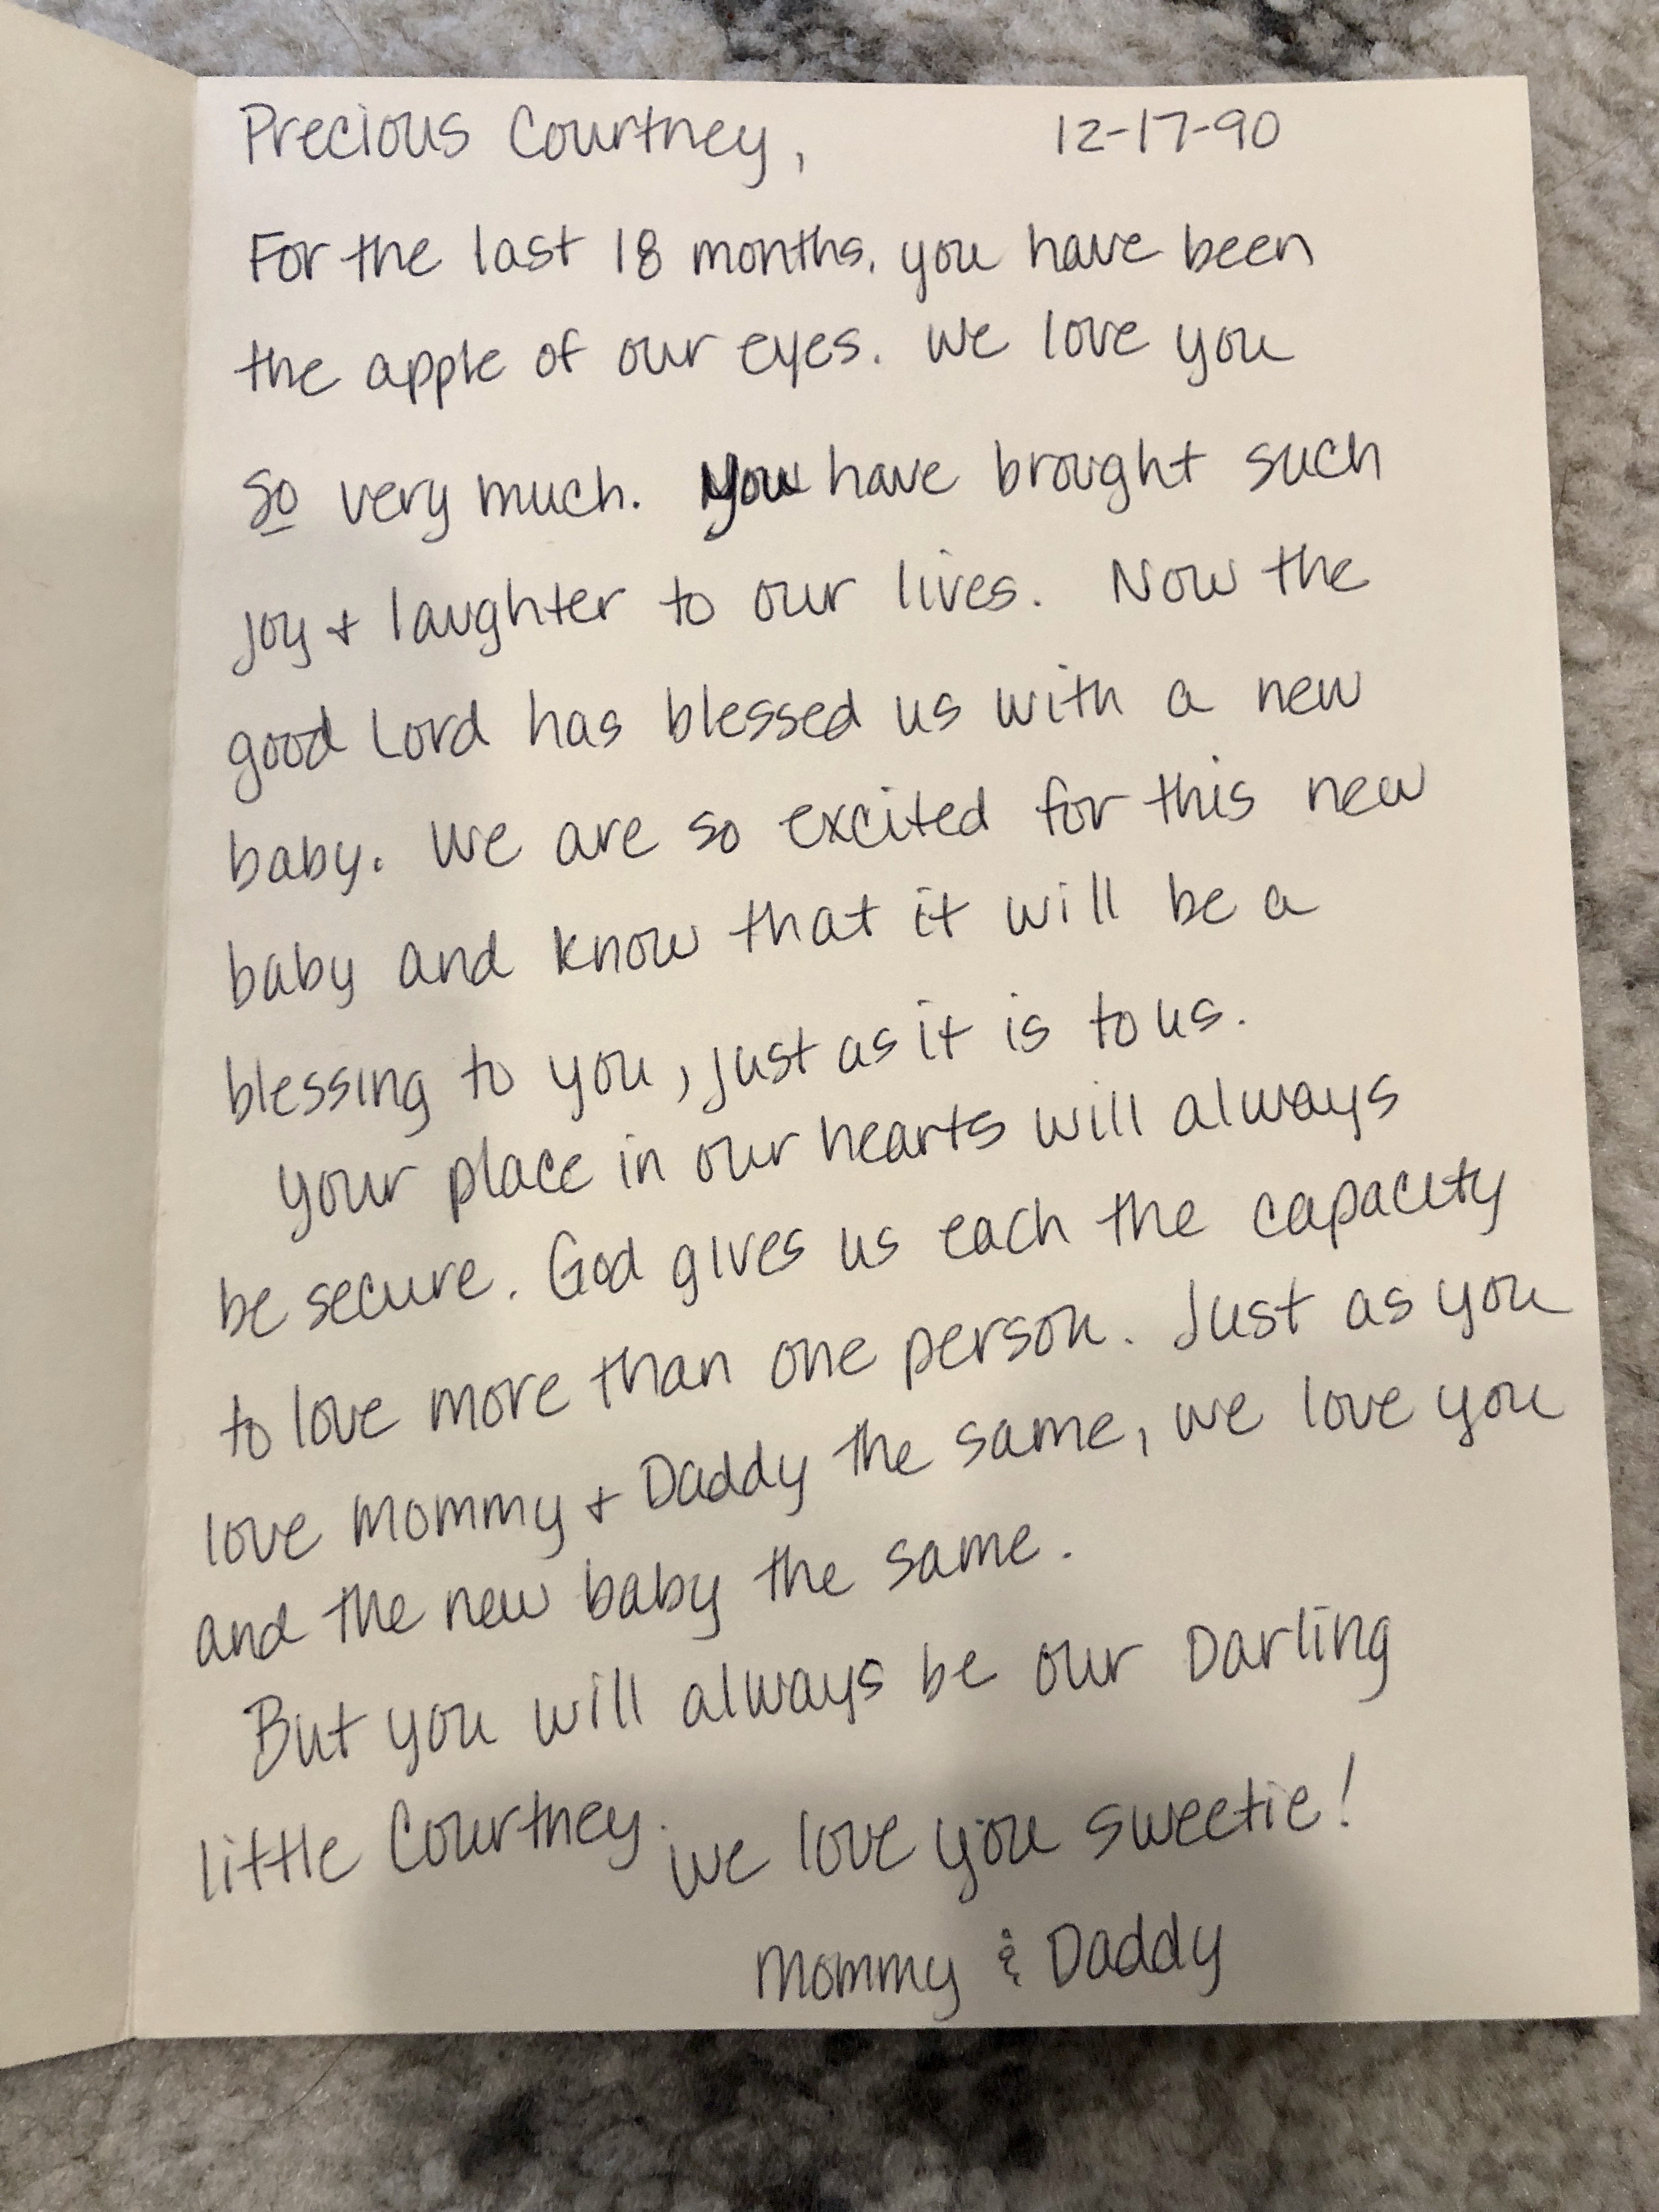 Precious Courtney, 12-17-90
For the last 18 months, you have been
the apple of our eyes. We love you
so very much. You have brought such
joy + laughter to our lives. Now the
good Lord has blessed us with a new
baby. We are so excited for this new
baby and know that it will be a
blessing to you, just as it is to us.
Your place in our hearts will always
be secure. God gives us each the capacity
to love more than one person. Just as you
love Mommy + Daddy the same, we love you
and the new baby the same.
But you will always be our Darling
little Courtney. We love you sweetie!
Mommy & Daddy